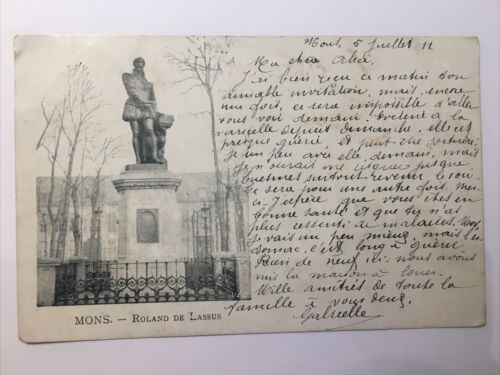 Mons, 5 juillet 11
Ma chère Alice,
J'ai bien reçu ce matin ton
aimable invitation, mais, encore
une fois, ce sera impossible d'aller
vous voir demain.
depuis dimanche, elle est
presque guérie, et peut-être
un peu avec elle, demain, mais
jusque
surtout revenir
Ce sera pour une autre fois. Mer-
ci. J'espère que vous êtes en
bonne santé et que tu n'as
plus ressenti de malaises. Moi,
je vais un peu mieux mais l'es-
tomac, c'est long à guérir
Rien de neuf ici: nous avons
mis la maison à louer.
Mille amitiés de toute la
famille à vous deux.
Gabrielle
MONS. — ROLAND DE LASSUS